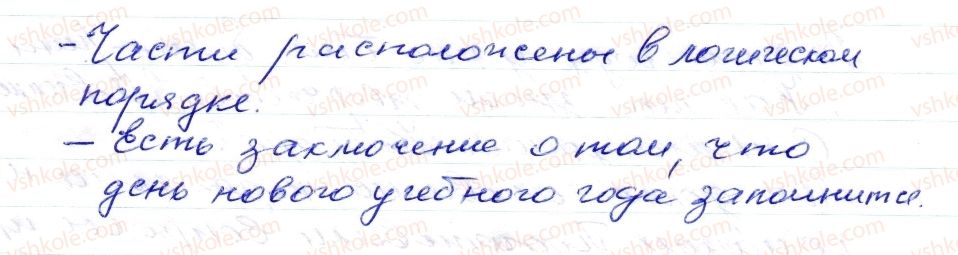 - Части расположены в логическом
порядке.
- Есть заключение о том, что
день нового учебного года запомнится.